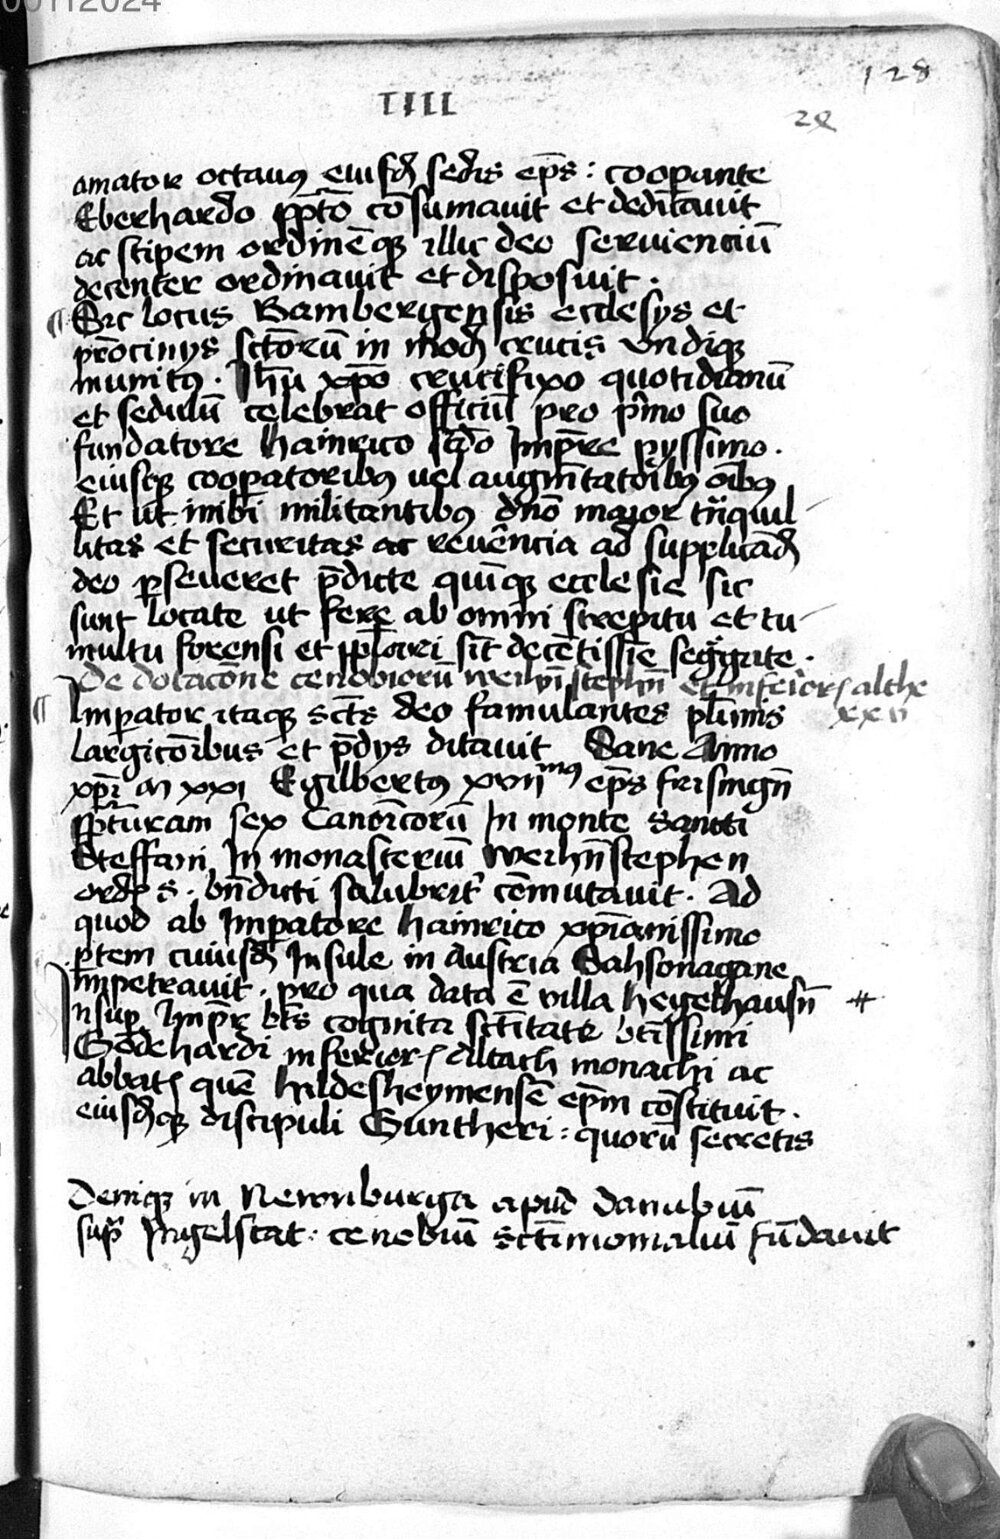 00112024
128
IIII
28
amator octauꝰ eiusdē sedis ep̄s : coop̄ante
Eberhardo p̄p̄to cōsumauit et dedicauit
ac stipem ordinēqꝫ illic deo seruienciū
decenter ordinauit et disposuit .
¶ Sic locus Bambergensis ecclesijs et
pr̄ocinijs sctōrū in modū crucis vndiqꝫ
munitꝰ . Jhū xpō crucifixo quotidianū
et sedulū celebrat officiū pro p̄mo suo
fundatore hainrico sctō Imp̄re pijssimo .
eiusqꝫ coop̄atoribꝰ uel augm̄tatoribꝰ om̄ibꝰ
Et ut inibi militantibꝰ dn̄o maior tnq̄uil
litas et securitas ac reuēncia ad supplicādū
deo p̱seueret p̄dicte quinqꝫ ecclesie sic
sunt locate ut fere ab omni strepitu et tu
multu forensi et pp̄lari sīt decētissime segg̃ate .
De dotacōne cenobiorū weihn̄stephn̄ et inferior̄ althe
xxvi
¶ Imp̱ator itaqꝫ sctꝰ deo famulantes pl̄imis
largicōibus et p̄dijs ditauit Sane Anno
xpī M xxi Egilbertꝰ xviiᵐᵘˢ ep̄s frisingn̄
p̄p̄turam sex Canoīcorū In monte Sancti
Steffani In monasteriū weihn̄stephen
ordīs S . bn̄dicti salubrit̄ cōmutauit . Ad
quod ab Imp̱atore hainrico xp̄ianissimo
p̱tem cuiusdā Insule in Austria Sahsonagane
impetrauit . pro qua data ē villa hegelhausn̄ #
Insup̱ Imp̄r bt̄s cognita sctītate btīssimi
Godehardi inferior̄ Altach monachi ac
abbatꝭ quē hildesheymensē ep̄m cōstituit .
eiusdēqꝫ discipuli Guntheri : quorū secretis
Deniqꝫ in Newnburga apud danubiū
supͣ Ingelstat : cenobiū sctīmonialiū fūdauit